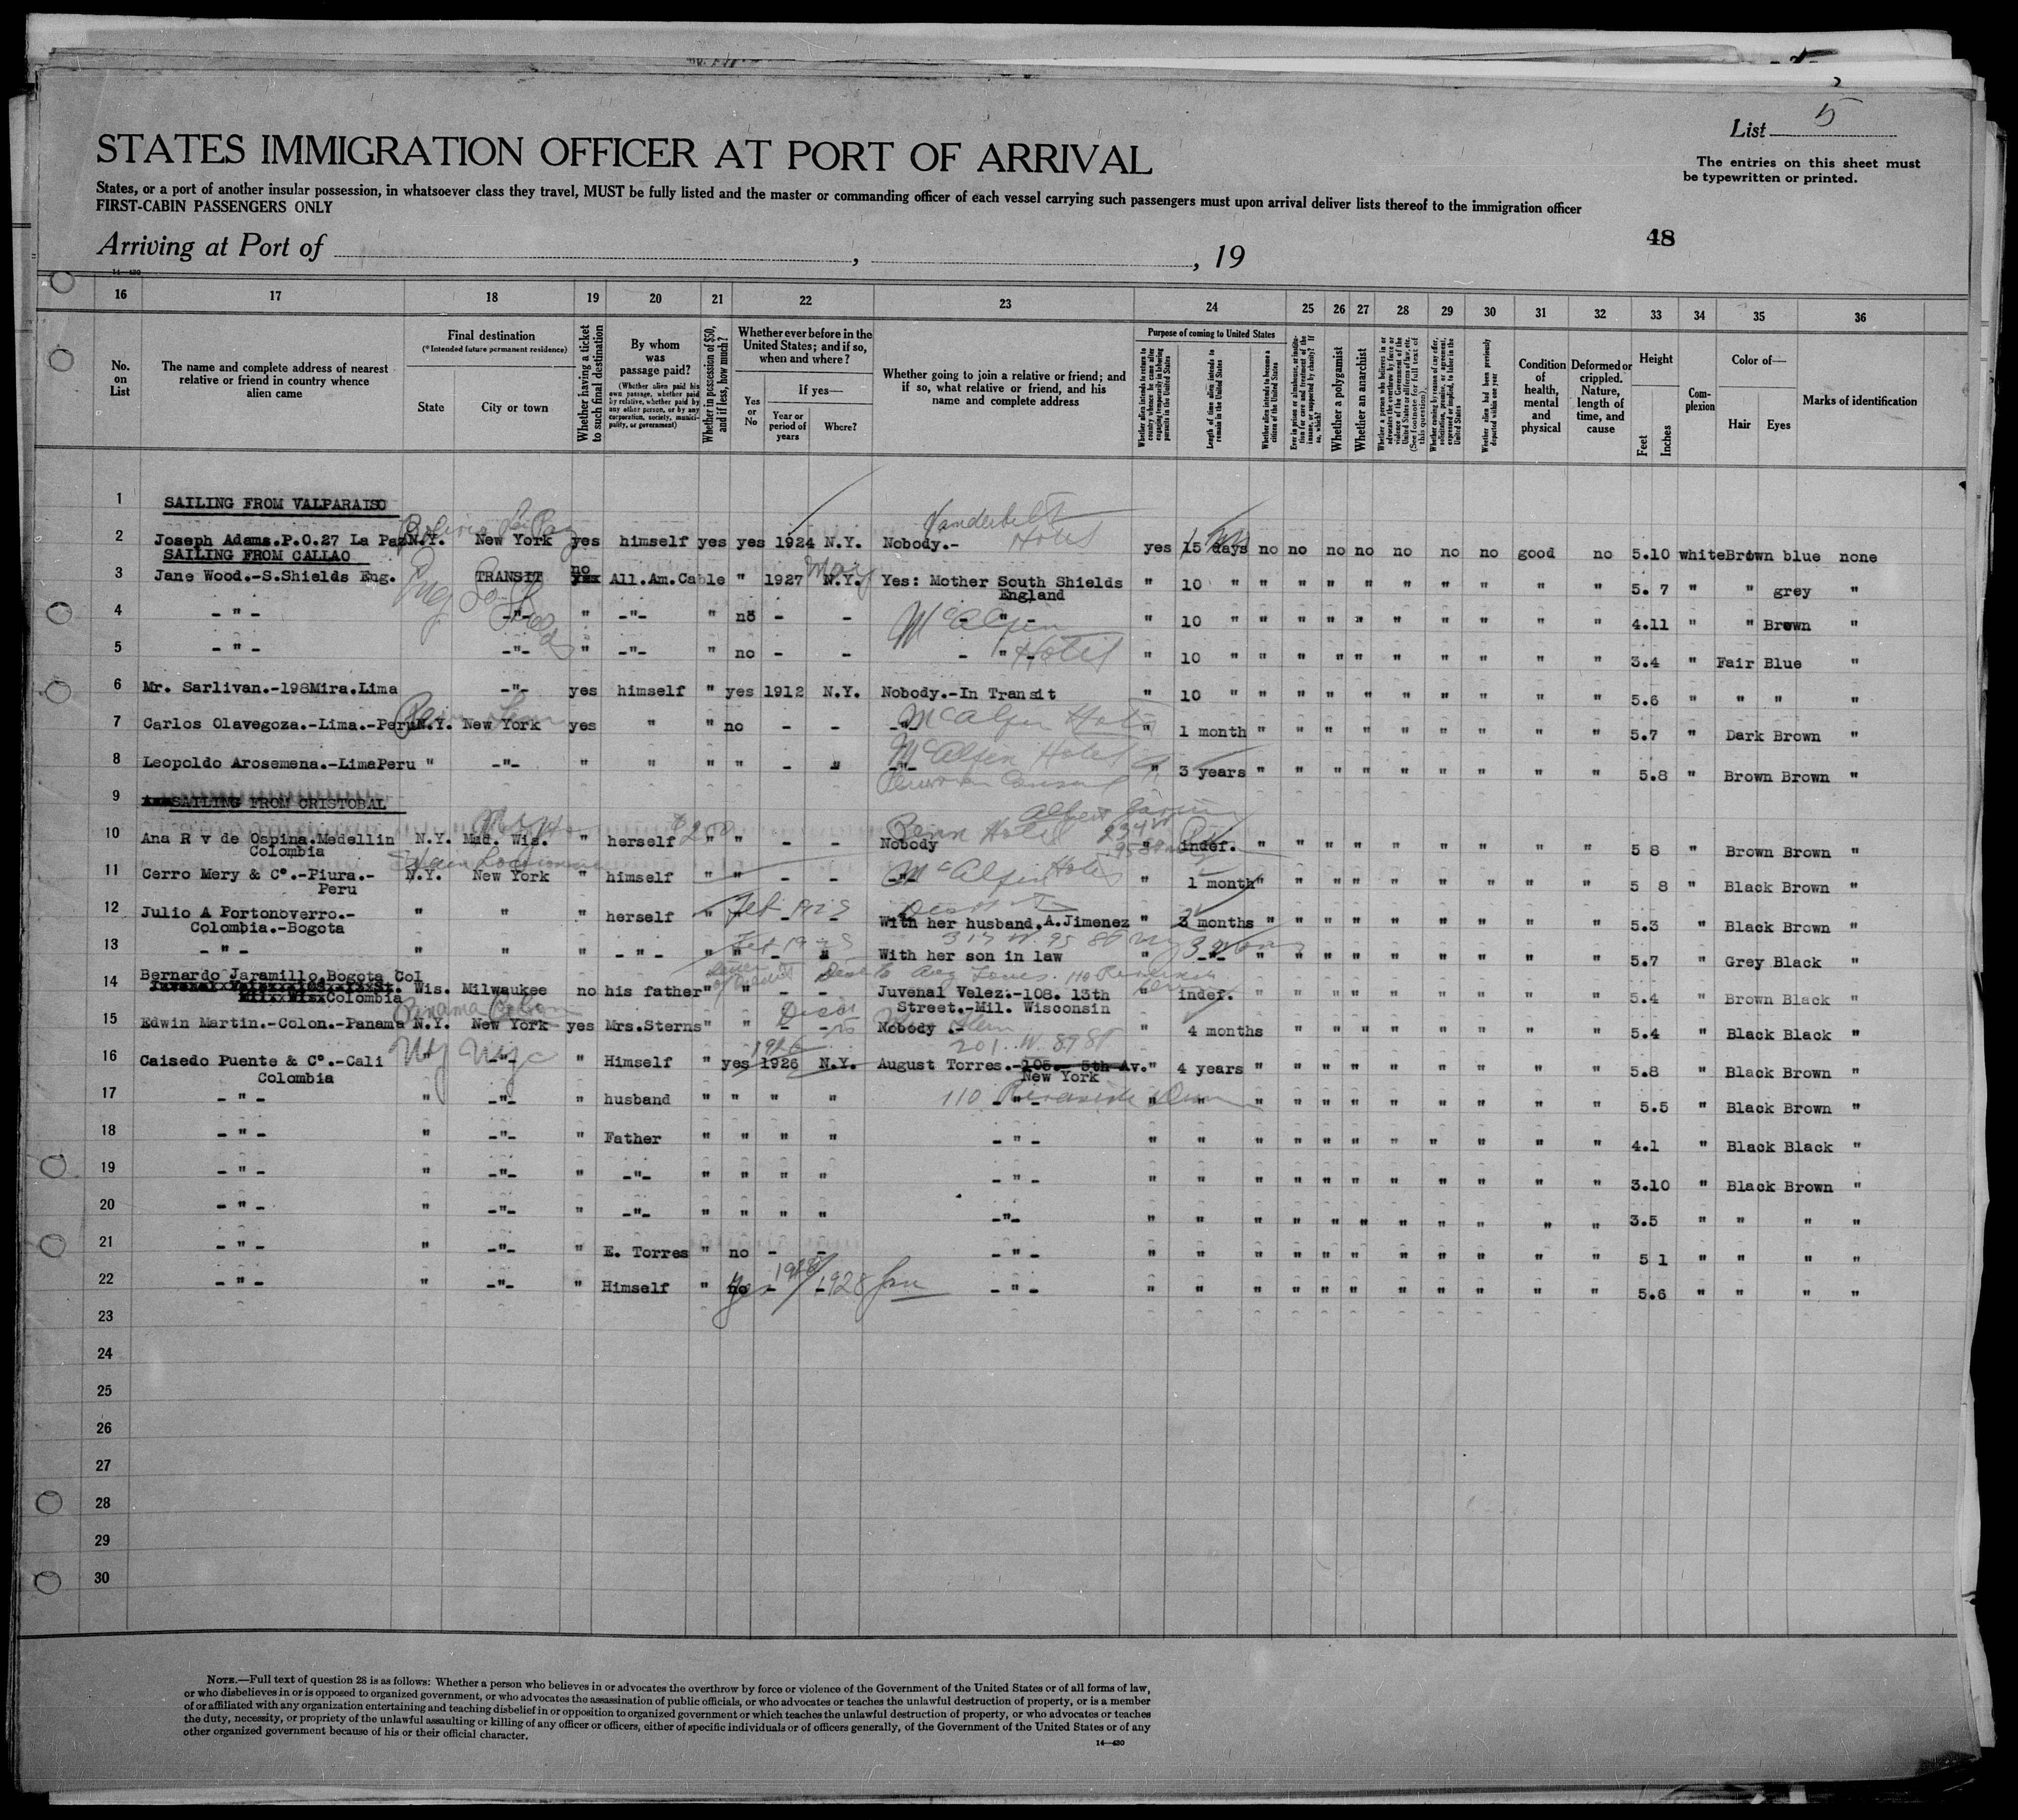 List 5
STATES IMMIGRATION OFFICER AT PORT OF ARRIVAL
The entries on this sheet must
be typewritten or printed.
States, or a port of another insular possession, in whatsoever class they travel, MUST be fully listed and the master or commanding officer of each vessel carrying such passengers must upon arrival deliver lists thereof to the immigration officer
FIRST-CABIN PASSENGERS ONLY
48
Arriving at Port of , , 19
14—430
16 17 18 19 20 21 22 23 24 25 26 27 28 29 30 31 32 33 34 35 36
No. on List
The name and complete address of nearest relative or friend in country whence alien came
Final destination
(*Intended future permanent residence)
State City or town
Whether having a ticket to such final destination
By whom was passage paid?
(Whether alien paid his own passage, whether paid by relative, whether paid by any other person, or by any corporation, society, municipality, or government)
Whether in possession of $50, and if less, how much?
Whether ever before in the United States; and if so, when and where?
Yes or No
If yes—
Year or period of years Where?
Whether going to join a relative or friend; and if so, what relative or friend, and his name and complete address
Purpose of coming to United States
Whether alien intends to return to country whence he came after engaging temporarily in laboring pursuits in the United States
Length of time alien intends to remain in the United States
Whether alien intends to become a citizen of the United States
Ever in prison or almshouse, or institution for care and treatment of the insane, or supported by charity? If so, which?
Whether a polygamist
Whether an anarchist
Whether a person who believes in or advocates the overthrow by force or violence of the Government of the United States or all forms of law, etc. (See footnote for full text of this question)
Whether coming by reason of any offer, solicitation, promise, or agreement, expressed or implied, to labor in the United States
Whether alien had been previously deported within one year
Condition of health, mental and physical
Deformed or crippled. Nature, length of time, and cause
Height
Feet Inches
Complexion
Color of—
Hair Eyes
Marks of identification
1 SAILING FROM VALPARAISO
Bolivia La Paz Vanderbilt Hotel
2 Joseph Adams.P.O.27 La Paz N.Y. New York yes himself yes yes 1924 N.Y. Nobody.- yes 15 days no no no no no no no good no 5.10 white Brown blue none
SAILING FROM CALLAO
3 Jane Wood.-S.Shields Eng. TRANSIT no All.Am.Cable " 1927 N.Y. Yes: Mother South Shields England " 10 " " " " " " " " " " 5. 7 " " grey "
4 - " - -"- " -"- " no - - - " - " 10 " " " " " " " " " " 4.11 " " Brown "
McAlpin Hotel
5 - " - -"- " -"- " no - - - " - " 10 " " " " " " " " " " 3.4 " Fair Blue "
6 Mr. Sarlivan.-198Mira.Lima -"- yes himself " yes 1912 N.Y. Nobody.-In Transit " 10 " " " " " " " " " " 5.6 " " " "
7 Carlos Olavegoza.-Lima.-Peru N.Y. New York yes " " no - - -"- McAlpin Hotel " 1 month " " " " " " " " " 5.7 " Dark Brown "
8 Leopoldo Arosemena.-LimaPeru " -"- " " " " - " -"- McAlpin Hotel " 3 years " " " " " " " " " 5.8 " Brown Brown "
9 SAILING FROM CRISTOBAL
10 Ana R v de Ospina.Medellin N.Y. Mad. Wis. " herself $200 " " - - Nobody Penn Hotel " indef. " " " " " " " " " 5 8 " Brown Brown "
Colombia
11 Cerro Mery & Co.-Piura.- N.Y. New York " himself " " - - -"- McAlpin Hotel " 1 month " " " " " " " " " 5 8 " Black Brown "
Peru
12 Julio A Portonoverro.- " " " herself " " Feb 1925 - - With her husband.A.Jimenez " 3 months " " " " " " " " " 5.3 " Black Brown "
Colombia.-Bogota
13 - " - " " " - " - " " - " With her son in law " -"- " " " " " " " " " 5.7 " Grey Black "
Bernardo Jaramillo.Bogota Col
14 Wis. Milwaukee no his father " " - - Juvenal Velez.-108. 13th " indef. " " " " " " " " " 5.4 " Brown Black "
Colombia Street.-Mil. Wisconsin
Panama Colon
15 Edwin Martin.-Colon.-Panama N.Y. New York yes Mrs.Sterns " " - - Nobody .- " 4 months " " " " " " " " 5.4 " Black Black "
1926 201 W. 87 St
16 Caisedo Puente & Co.-Cali " -"- " Himself " yes 1926 N.Y. August Torres.-105.- 5th Av. " 4 years " " " " " " " " " 5.8 " Black Brown "
Colombia New York
17 - " - " -"- " husband " " " " - " - 110 Riverside " " " " " " " " " " " 5.5 " Black Brown "
18 - " - " -"- " Father " " " " - " - " " " " " " " " " " " 4.1 " Black Black "
19 - " - " -"- " -"- " " " " - " - " " " " " " " " " " " 3.10 " Black Brown "
20 - " - " -"- " -"- " " " " -"- " " " " " " " " " " " 3.5 " " " "
21 - " - " -"- " E. Torres " no - - - " - " " " " " " " " " " " 5 1 " " " "
22 - " - " -"- " Himself " no yes - 1928 Jan - " - " " " " " " " " " " " 5.6 " " " "
23
24
25
26
27
28
29
30
NOTE.—Full text of question 28 is as follows: Whether a person who believes in or advocates the overthrow by force or violence of the Government of the United States or of all forms of law,
or who disbelieves in or is opposed to organized government, or who advocates the assassination of public officials, or who advocates or teaches the unlawful destruction of property, or is a member
of or affiliated with any organization entertaining and teaching disbelief in or opposition to organized government or which teaches the unlawful destruction of property, or who advocates or teaches
the duty, necessity, or propriety of the unlawful assaulting or killing of any officer or officers, either of specific individuals or of officers generally, of the Government of the United States or of any
other organized government because of his or their official character.
14—430